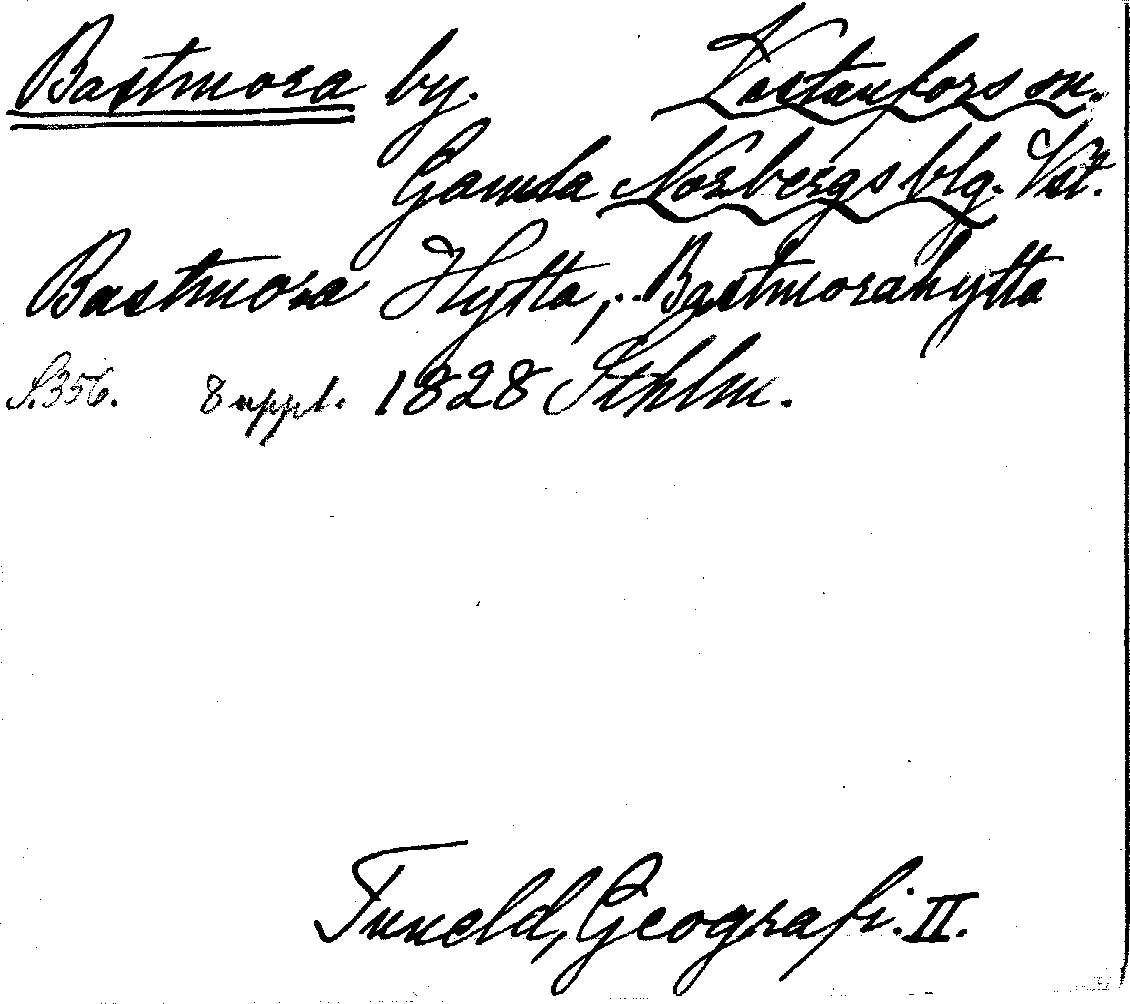 Bastmora by. Västanfors sn.
Gamla Norbergs blg. Vstl.
Bastmora Hytta, Bastmorahytta
S. 356. 8 uppl. 1828 Sthlm.
Tuneld, Geografi. II.